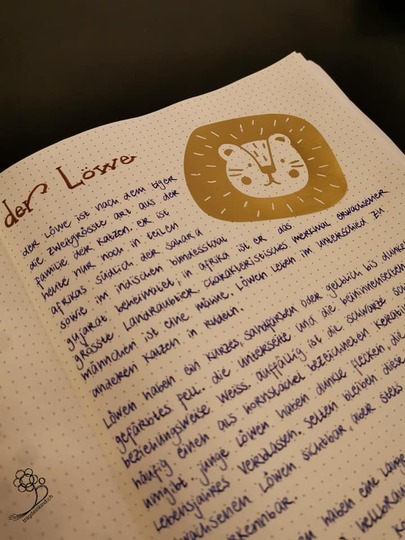 der Löwe
der Löwe ist nach dem tiger
die zweitgrösste art aus der
familie der katzen. er ist
heute nur noch in teilen
afrikas südlich der sahara
sowie im indischen bundesstaat
gujarat beheimatet. in afrika ist er das
grösste Landraubtier. charakteristisches merkmal erwachsener
männchen ist eine mähne. Löwen leben im unterschied zu
anderen katzen in rudeln.
Löwen haben ein kurzes, sandfarben oder gelblich bis dunkel
gefärbtes fell. die unterseite und die beininnenseiten
beziehungsweise weiss. auffällig ist die schwarze
häufig einen als hornstachel bezeichneten
umgibt. junge Löwen haben dunkle flecken, die
Lebensjahres verblassen. selten bleiben diese
Löwen sichtbar aber stets
erkennbar.
haben eine Lange
hellbraun